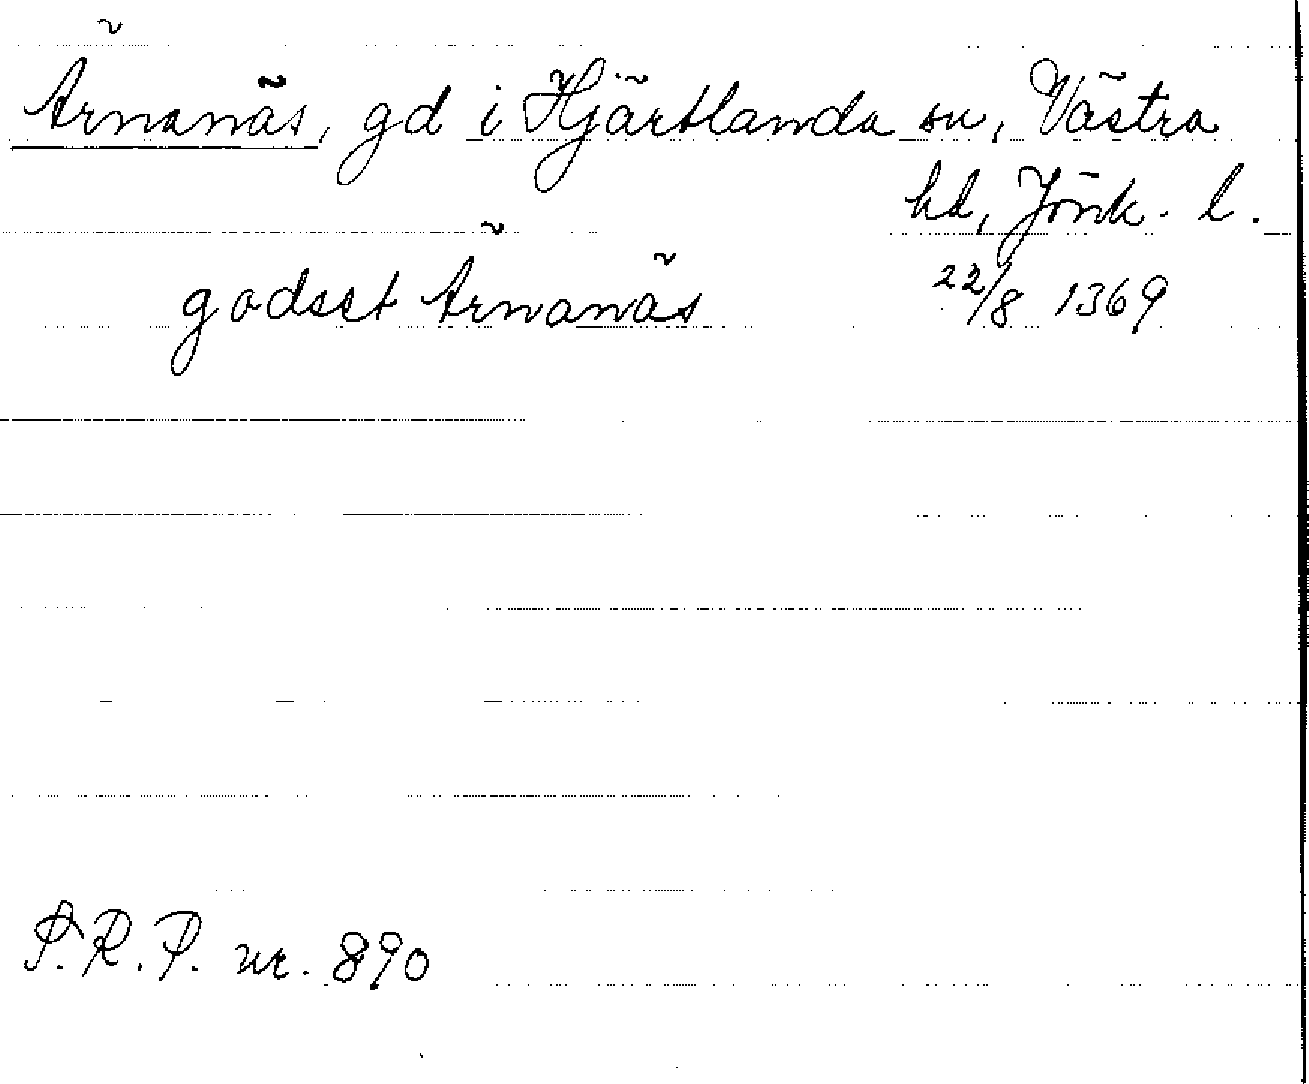 Ärnanäs, gd i Hjärtlanda sn, Västra
hd, Jönk. l.
godset Ärnanäs 22/8 1369
S.R.P. nr. 890